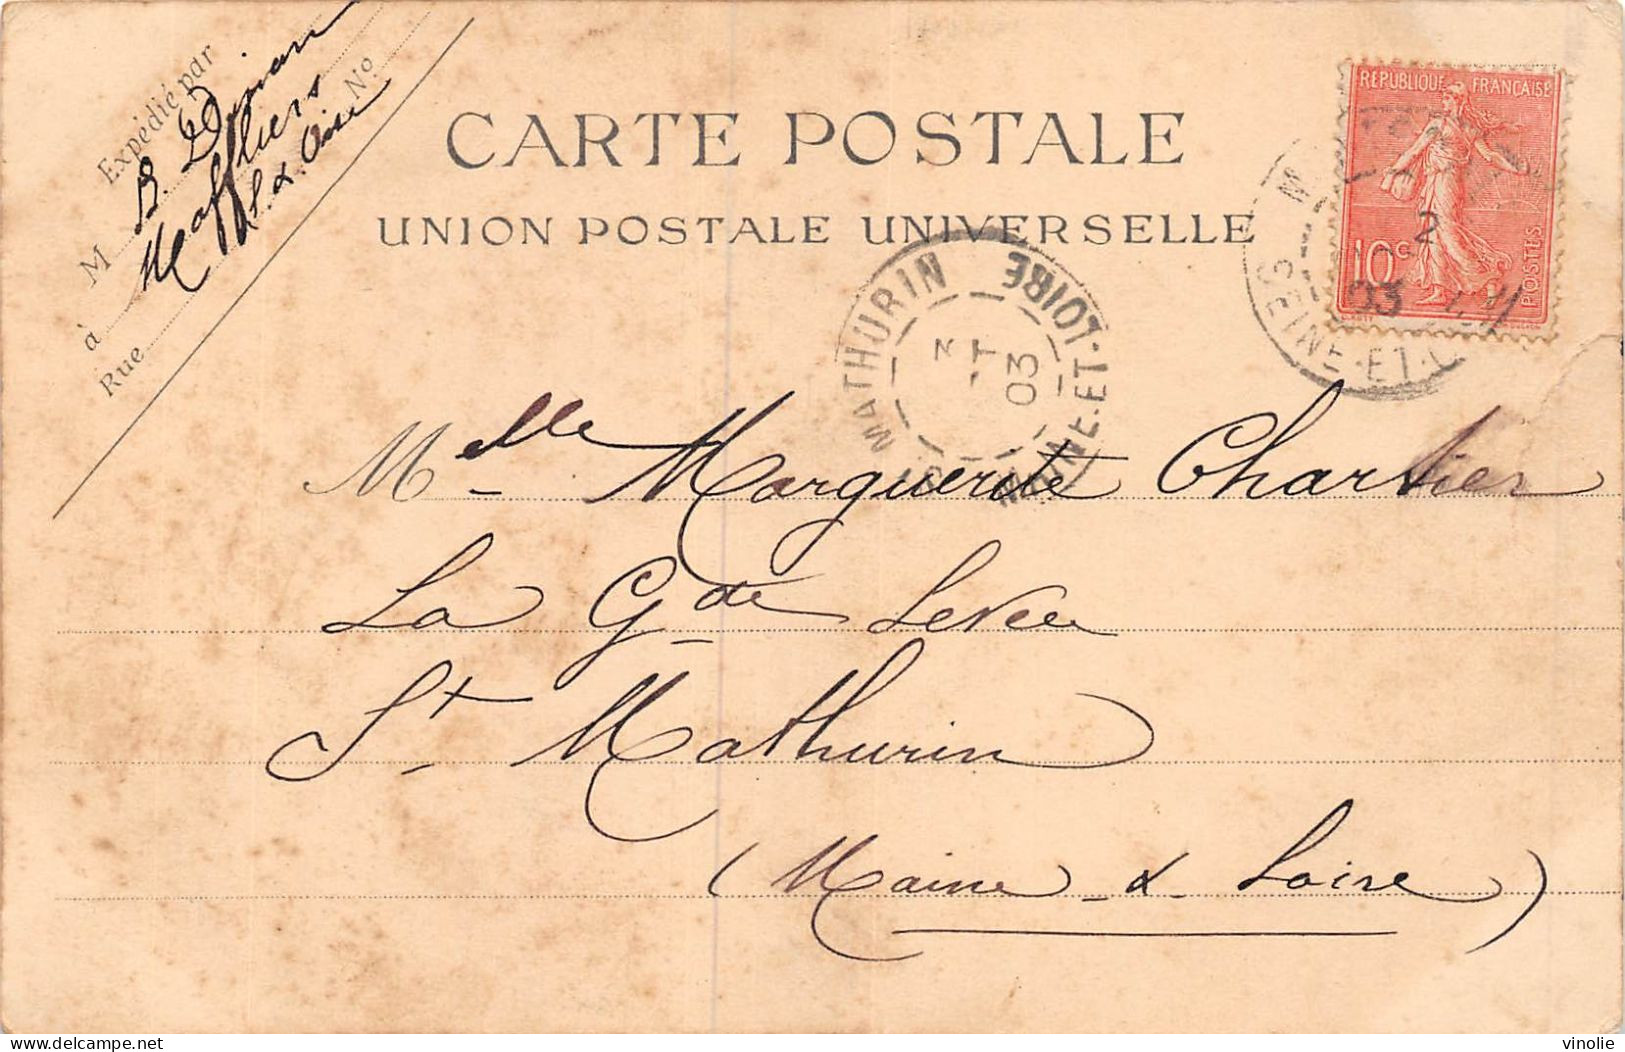 Expédié par
M B.
à Maffliers
Rue S. & Oise No
CARTE POSTALE
UNION POSTALE UNIVERSELLE
RÉPUBLIQUE FRANÇAISE
10c
POSTES
2
03
SEINE-ET-
ST MATHURIN
MAINE-ET-LOIRE
3
03
Melle Marguerite Chartier
La Gde Levée
St Mathurin
(Maine & Loire)
vinolie